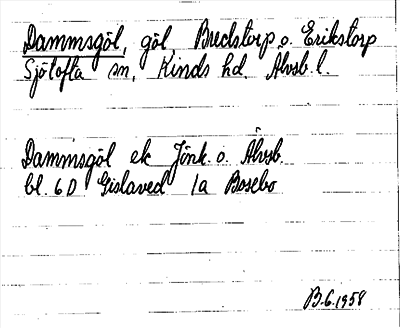 Dammsgöl, göl, Bredstorp o. Erikstorp
Sjötofta sn, Kinds hd. Älvsb. l.
Dammsgöl ek Jönk. o. Älvsb.
bl. 6D Gislaved 1a Bosebo
B.G. 1958